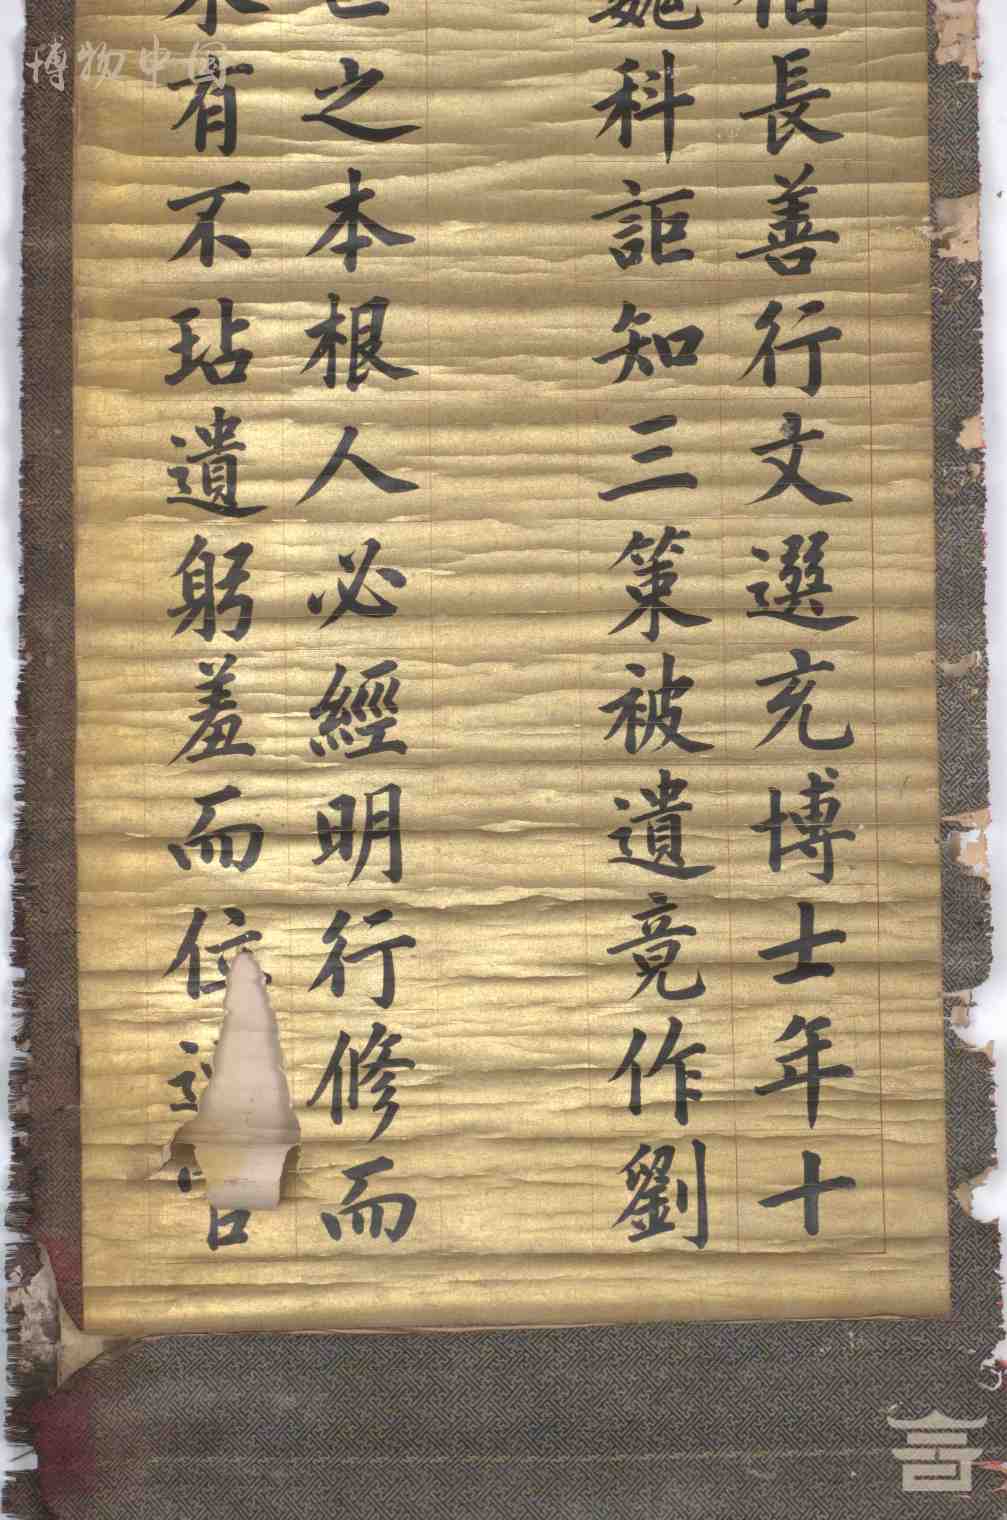 長善行文選充博士年十
巍科詎知三策被遺竟作劉
之本根人必經明行修而
有不玷遺躬羞而位
博物中国